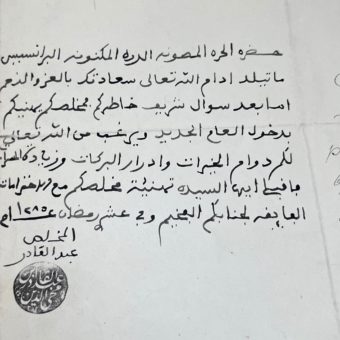 حضرة الحرة المصونه الدرة المكنونه البرانسيس
ماتيلد ادام الله تعالى سعادتكم بالعز والنعم
اما بعد سوال شريف خاطركم مخلصكم يهنيكم
بدخول العام الجديد ويرغب من الله تعالى
لكم دوام الخيرات وادرار البركات وزيادة
فاقبلوا ايها السيده تهنئة مخلصكم مع احترامات
الفايقه لجنابكم الفخيم وفي عشر رمضان ١٢٨٥
المخلص
عبد القادر
عبد القادر بن
محيي الدين